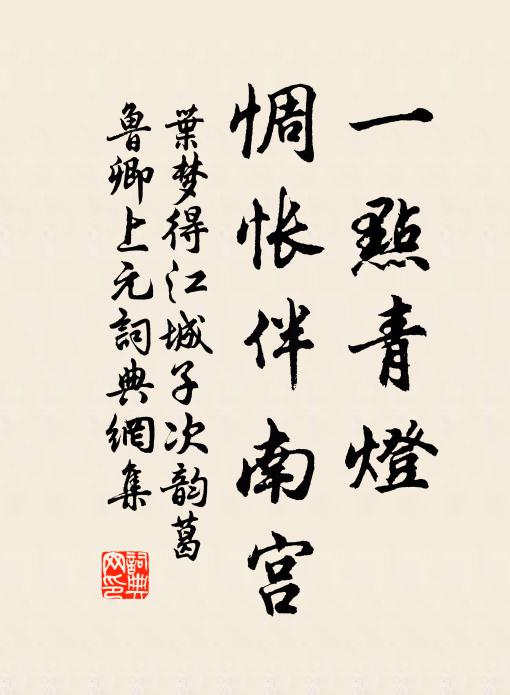 一點青燈
惆怅伴南宫
葉梦得江城子次韵葛
魯卿上元詞典網集
詞典網印